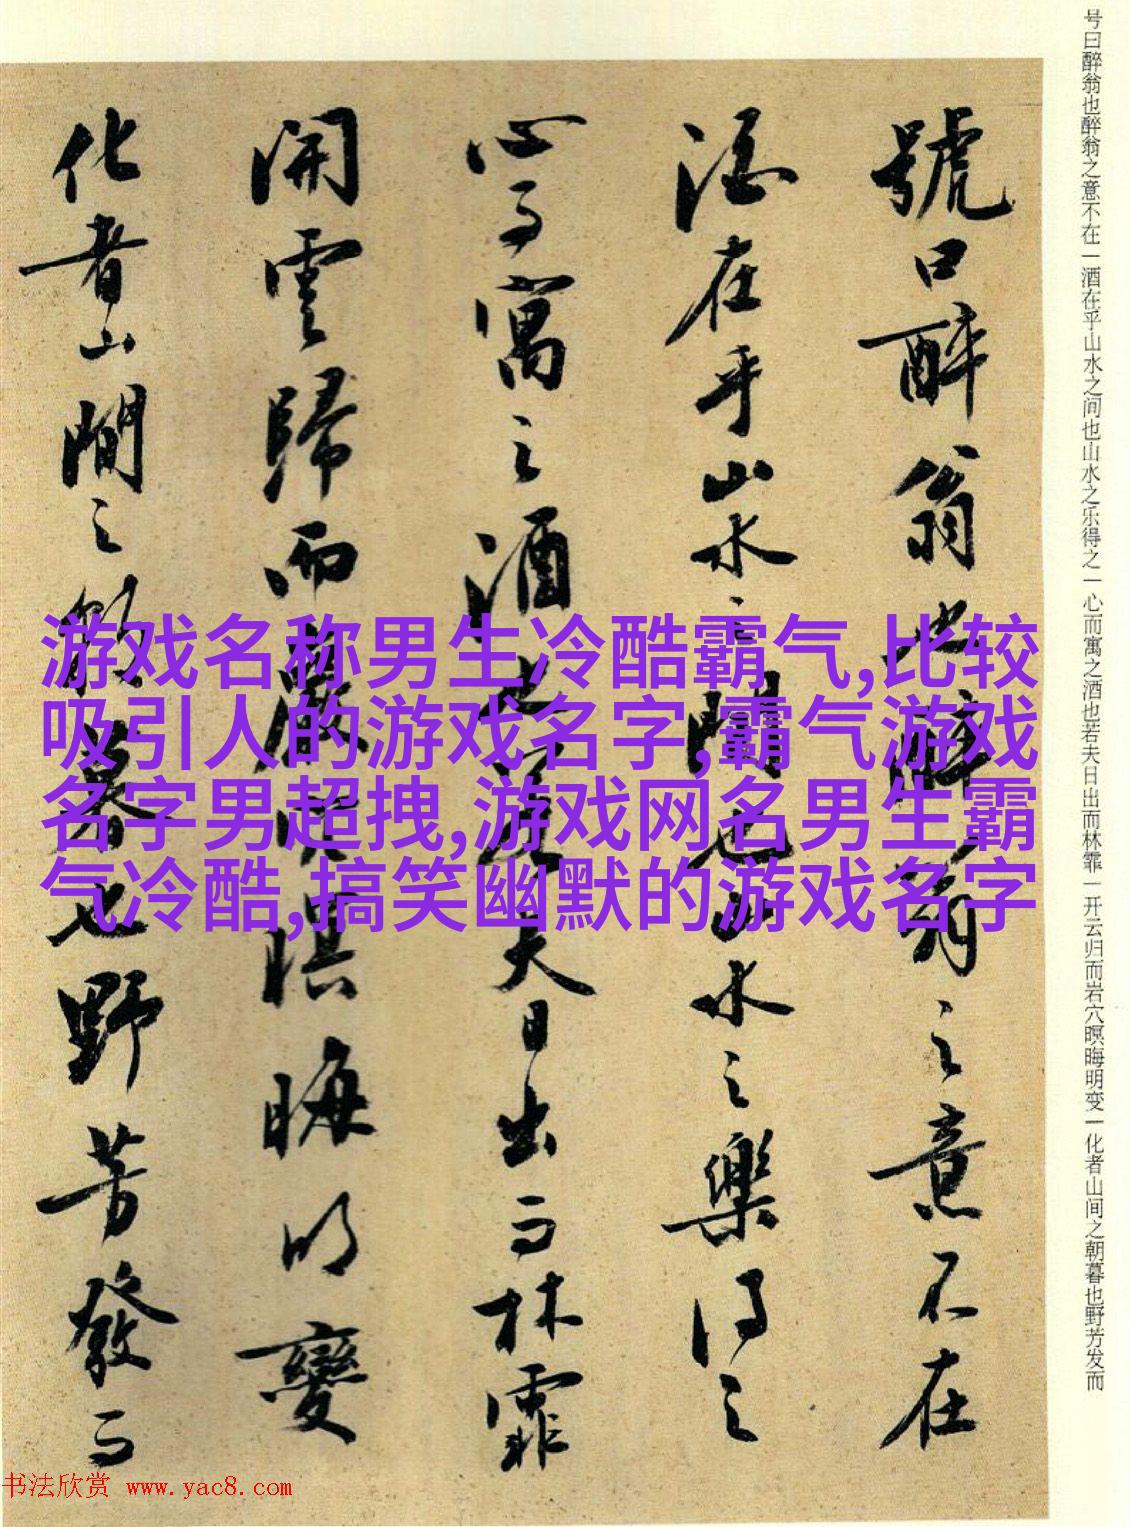 号曰醉翁也醉翁之意不在一酒在乎山水之间也山水之乐得之一心而寓之酒也若夫日出而林霏一开云归而岩穴暝晦明变一化者山间之朝暮也野芳发而
號曰醉翁也醉翁之意不在
酒在乎山水之間也山水之樂得之
心而寓之酒也若夫日出而林霏
開雲歸而巖穴暝晦明變
化者山間之朝暮也野芳發而
游戏名称男生冷酷霸气,比较
吸引人的游戏名字,霸气游戏
名字男超拽,游戏网名男生霸
气冷酷,搞笑幽默的游戏名字
书法欣赏 www.yac8.com